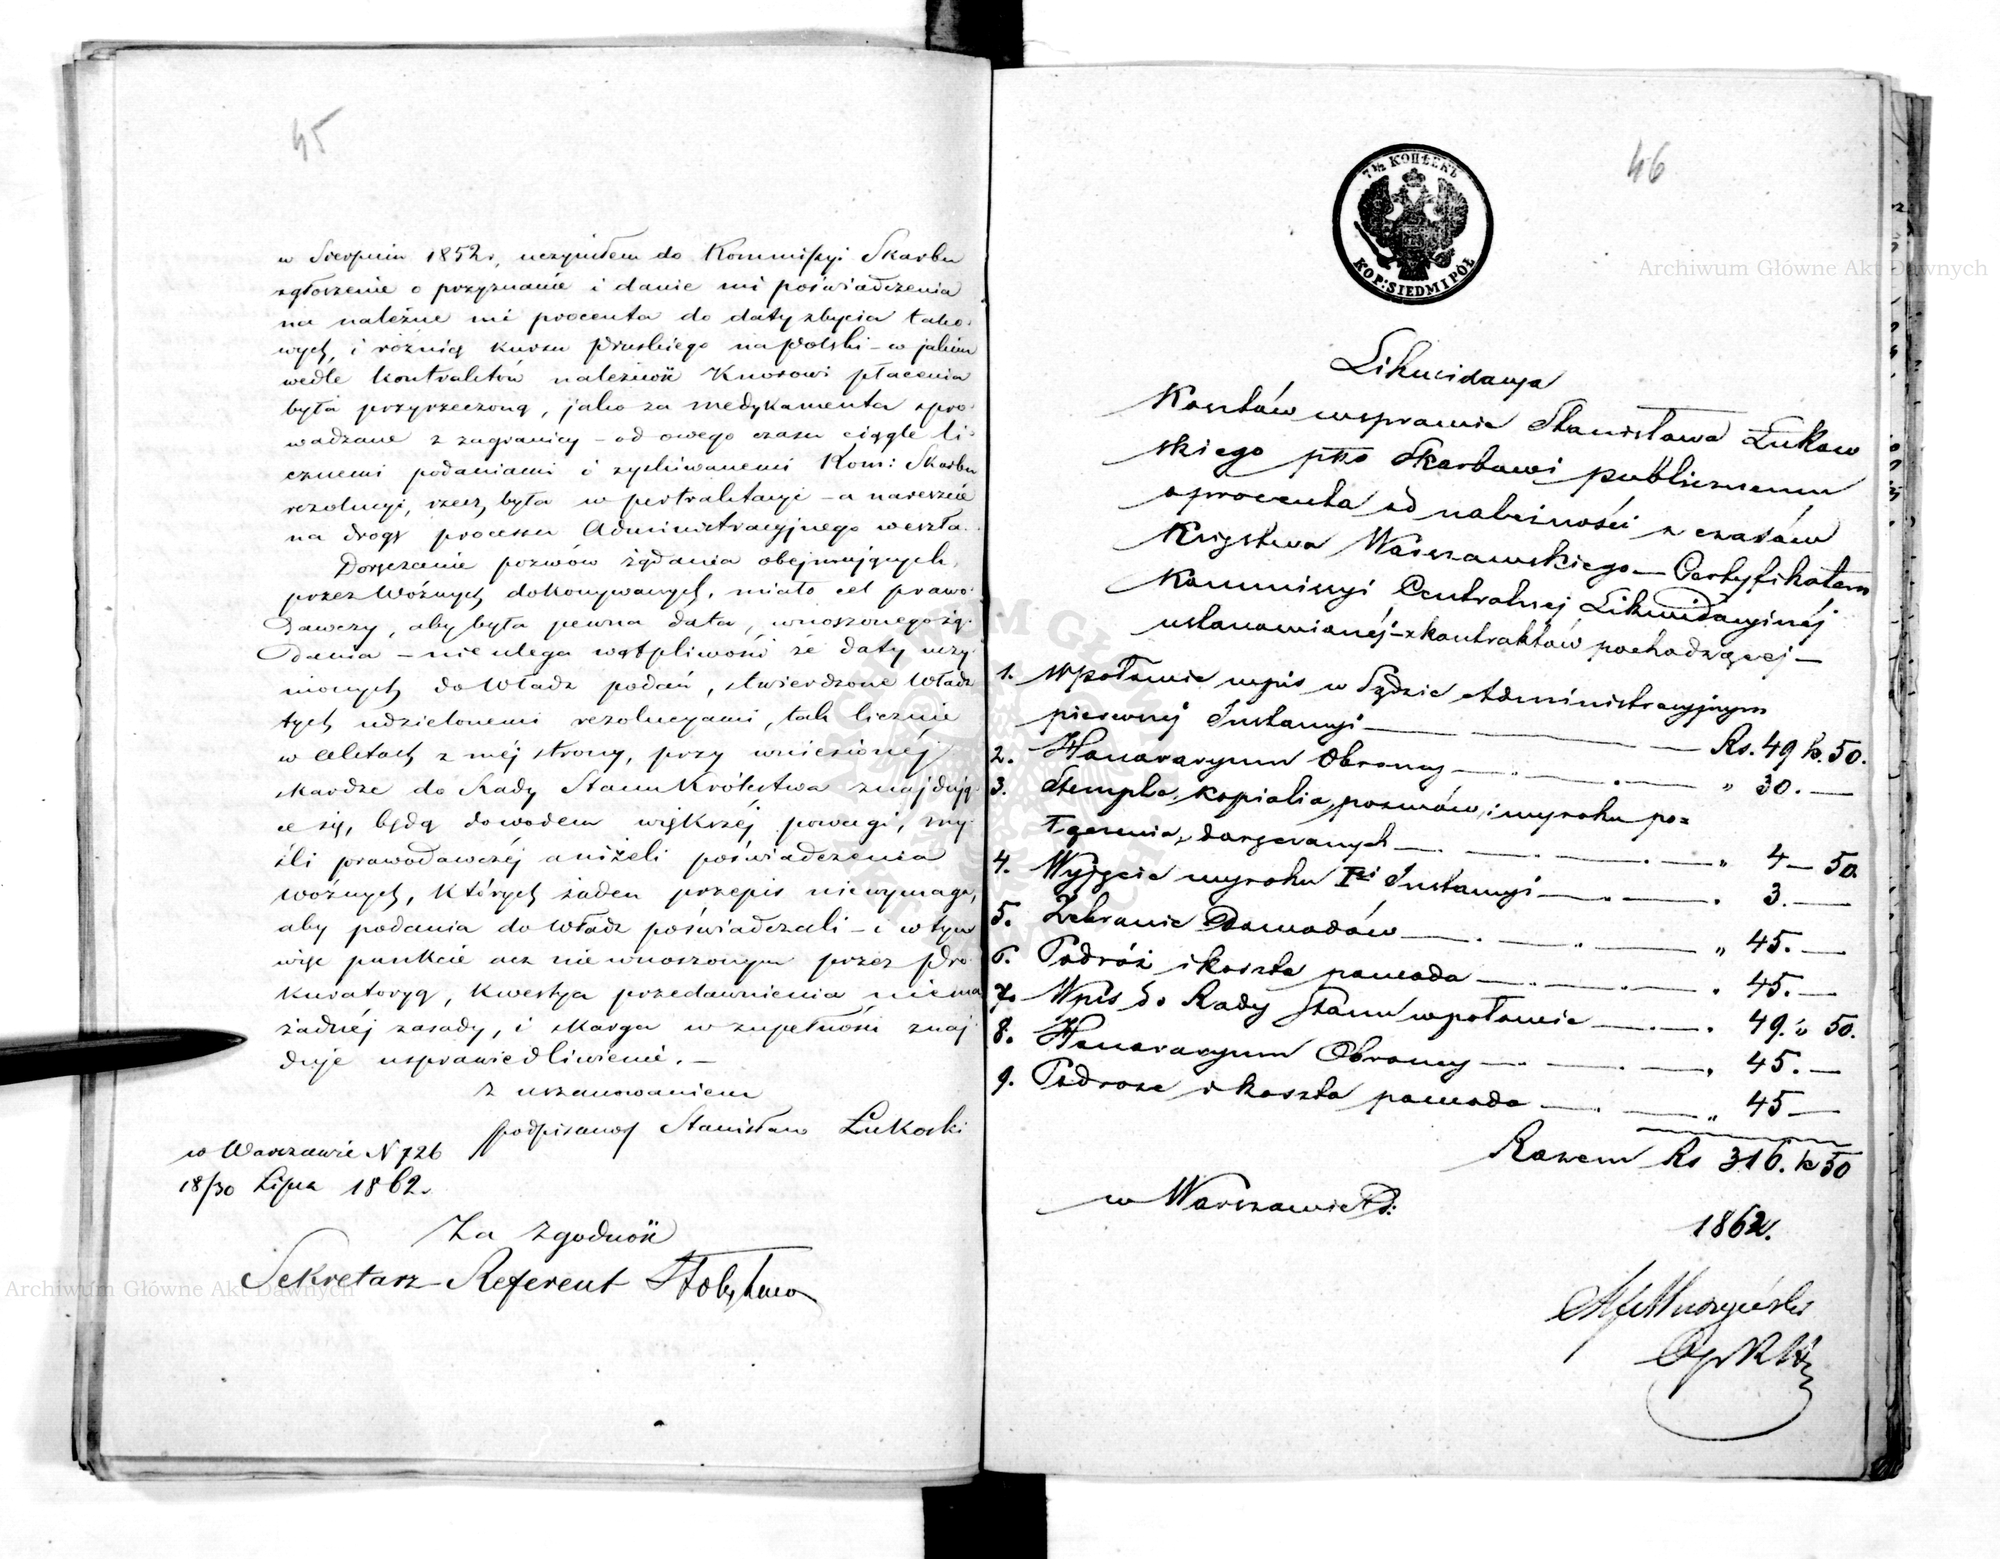 45
w Sierpniu 1852 r, uczyniłem do Kommissyi Skarbu
zgłoszenie o przyznanie i danie mi poświadczenia
na należne mi procenta do daty zbycia tako-
wych, i różnicę kursu Pruskiego na Polski – w jakim
wedle kontraktów należność Knorowi płacenia
była przyrzeczoną, jako za medykamenta spro-
wadzane z zagranicy – od owego czasu ciągle li-
cznemi podaniami i zyskiwanemi Kom: Skarbu
rezolucyi, rzecz była w pertraktacyi – a nareszcie
na drogę processu Administracyjnego weszła.
Doręczenie pozwów żądania obejmujących,
przez Woźnych dokonywanych, miało cel prawo-
dawczy, aby była pewna data, wnoszonego żą-
dania – nie ulega wątpliwości że daty uczy-
nionych do Władz podań, stwierdzone Władz
tych udzielonemi rezolucyami, tak licznie
w aktach z mej strony, przy wniesionej
skardze do Rady Stanu Królestwa znajdują-
ce się, będą dowodem większej powagi, my-
śli prawodawczej aniżeli poświadczenia
Woźnych, których żaden przepis niewymaga,
aby podania do Władz poświadczali – i w tym
więc punkcie acz niewnoszonym przez Pro-
kuratoryą, kwestya przedawnienia niema
żadnej zasady, i skarga w zupełności znaj-
duje usprawiedliwienie. –
z uszanowaniem
podpisanoʃ Stanisław Łukoski
w Warszawie N 726
18/30 Lipca 1862.
Za Zgodność
Sekretarz Referent
46
7½ КОПѢЕКЪ
KOP: SIEDM I PÓŁ
Likwidacya
Kosztów w sprawie Stanisława Łukow
skiego pko Skarbowi publicznemu
o procenta od należności z czasów
Księstwa Warszawskiego – Certyfikatem
Kommissyi Centralnej Likwidacyjnej
ustanowionej – z kontraktów pochodzącej –
1. W połowie wpis w Sądzie Administracyjnym
pierwszej Instancyi — Rs. 49 k. 50.
2. Honoraryum Obrony — " 30. —
3. Stemple, kopialia, pozwów, i wyroku po=
łączenia, doręczanych — " 4 — 50
4. Wyjęcie wyroku Iéj Instancyi — " 3. —
5. Zebranie Dowodów — " 45. —
6. Podróż i koszta powoda — " 45. —
7. Wpis do Rady Stanu w połowie — " 49. " 50.
8. Honoraryum Obrony — " 45. —
9. Podroże i koszta powoda — " 45 —
Razem Rs 316. k 50
w Warszawie D:
1862 r.
Archiwum Główne Akt Dawnych
Archiwum Główne Akt Dawnych